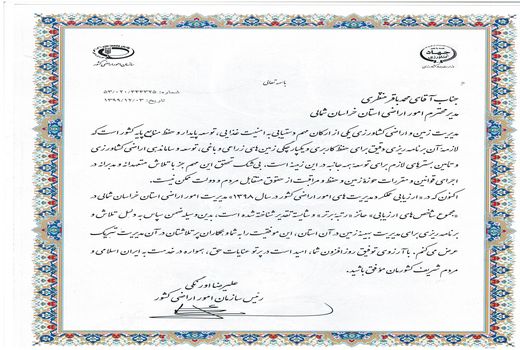 جهاد کشاورزی
سازمان امور اراضی کشور
باسمه تعالی
شماره: ۵۳/۰۲۰/۴۴۳۲۵
تاریخ: ۱۳۹۹/۱۲/۰۳
جناب آقای محمدباقر منظری
مدیر محترم امور اراضی استان خراسان شمالی
مدیریت زمین و اراضی کشاورزی یکی از ارکان مهم دستیابی به امنیت غذایی، توسعه پایدار و حفظ منابع پایه کشور است که
لازمه آن برنامه ریزی دقیق برای حفظ کاربری و یکپارچگی زمین های زراعی و باغی، توسعه و ساماندهی اراضی کشاورزی
و تامین بسترهای لازم برای توسعه همه جانبه در این زمینه است. بی شک تحقق این مهم جز با تلاش متعهدانه و مدبرانه در
اجرای قوانین و مقررات حوزه زمین و حفظ و مراقبت از حقوق متقابل مردم و دولت ممکن نیست.
اکنون که در «ارزیابی عملکرد مدیریت های امور اراضی کشور در سال ۱۳۹۸» مدیریت امور اراضی استان خراسان شمالی در
«مجموع شاخص های ارزیابی» حائز «رتبه برتر» و شایسته تقدیر شناخته شده است، بدین وسیله ضمن سپاس به دلیل تلاش و
برنامه ریزی برای مدیریت بهینه زمین در آن استان، این موفقیت را به شما و همکاران پرتلاشتان در آن مدیریت تبریک
عرض می کنم. با آرزوی توفیق روزافزون شما، امید است در پرتو عنایات حق، همواره در خدمت به ایران اسلامی و
مردم شریف کشورمان موفق باشید.
علیرضا اورنگی
رئیس سازمان امور اراضی کشور